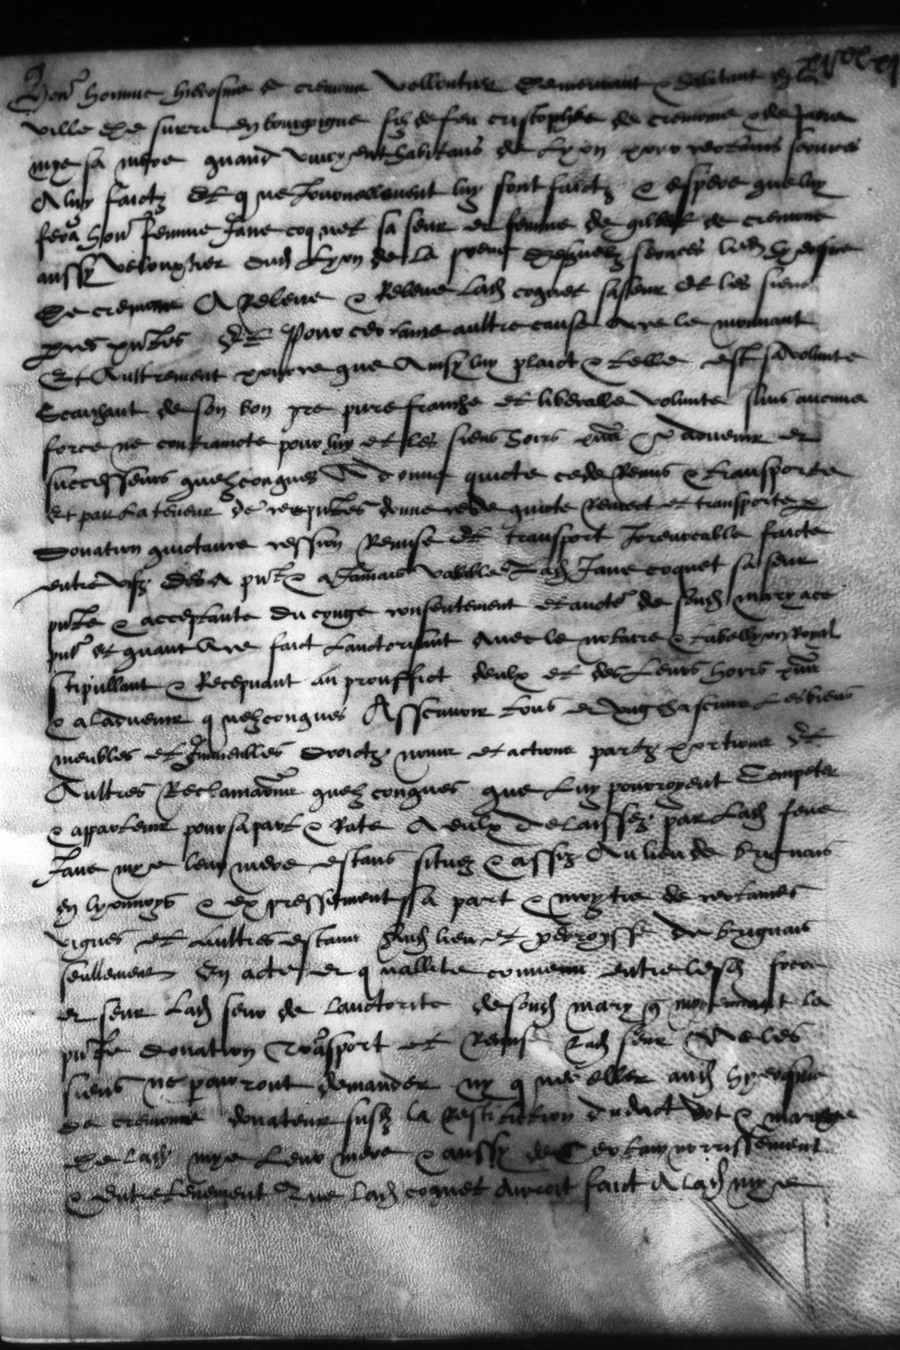 Hon̄ homme hierosme de cremone velloutier demeurant & habitant en la
ville de surre en bourgogne filz de feu cristophle de cremone & de Jane
mye sa mere quand vivoyent habitans de Lyon pour certains services
A luy faictz Et que Journellement luy sont faictz & espere que luy
fera hon̄ femme Jane coquet sa seur et femme de gilbert de cremone
aussy velouztier dud Lyon de la preuve desquelz services led hyerosme
de cremone A Releve & Releve Lad coquet sa seur et les siens
pres pn̄tes Et Pour certaine aultre cause A ce le mouvant
Et Aultrement pource que Ainsy luy plaict & telle est sa volunte
Scaichant de son bon gre pure franche et liberalle volunte sans aucune
force ne contraincte pour luy et les siens hoirs & advenir et
successeurs quelzconques A donne quicte cede Remis & transporte
Et par La teneur de ces pn̄tes donne cede quicte Remect et transporte p
Donation quictance cession Remise et transport Irrevocable faicte
entre vifz des A pn̄t & a Jamais vallable a Lad Jane coquet sa seur
pn̄te & acceptante du conge consentement et aucte de sond mary a ce
pn̄t et quant A ce faict Lauctorisant Avec le notaire & tabellyon Royal
stipullant & Recepvant au prouffict deulx et de Leurs hoirs
& aladvenir quelzconques Asscavoir tous et ung chascuns Les biens
meubles et Immeubles droictz noms et actions partz portions Et
Aultres Reclamations quelzconques que Luy pourroyent Competer
& appartenir pour sa part & Rate A eulx delaissez par Lad feue
Jane mye leur mere estans situez & assis Au lieu de brignais
en lyonnoys & expressement sa part & moytie de certaines
vignes et Aultres estans Aud lieu et parroysse de brignais
seullement En acte et quallite convenu entre lesd frere
et seur Lad seur de lauctorite desond mary que moyennant la
pn̄te donation Transport et Remise Lad seur Ne les
siens ne pourront demander ny quereller aud hyerosme
de cremone donateur susd la Restitution dudict dot & mariage
de lad mye Leur mere & aussy de Certain norrissement
& entretenement Que lad coquet Auroit faict A lad mye